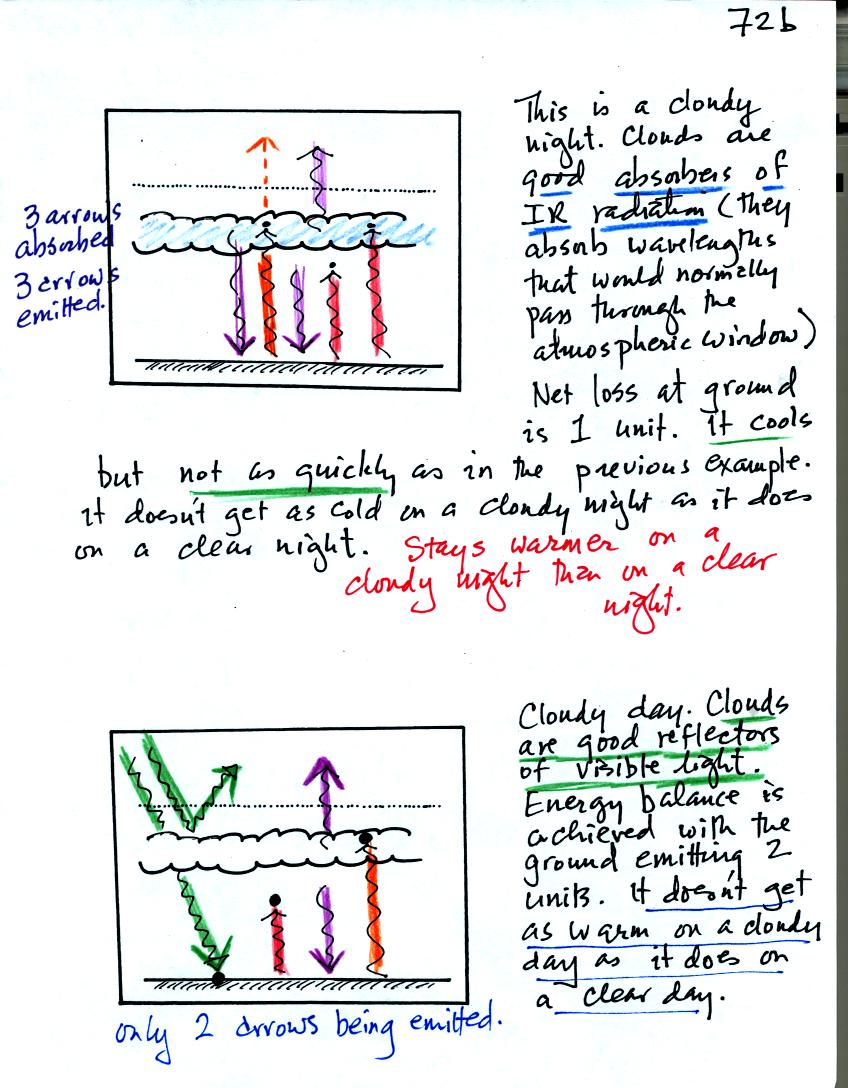 72b
This is a cloudy
night. Clouds are
good absorbers of
IR radiation (they
absorb wavelengths
that would normally
pass through the
atmospheric window)
3 arrows
absorbed
3 arrows
emitted.
Net loss at ground
is 1 unit. It cools
but not as quickly as in the previous example.
it doesn't get as cold on a cloudy night as it does
on a clear night. Stays warmer on a
cloudy night than on a clear
night.
Cloudy day. Clouds
are good reflectors
of visible light.
Energy balance is
achieved with the
ground emitting 2
units. It doesn't get
as warm on a cloudy
day as it does on
a clear day.
only 2 arrows being emitted.